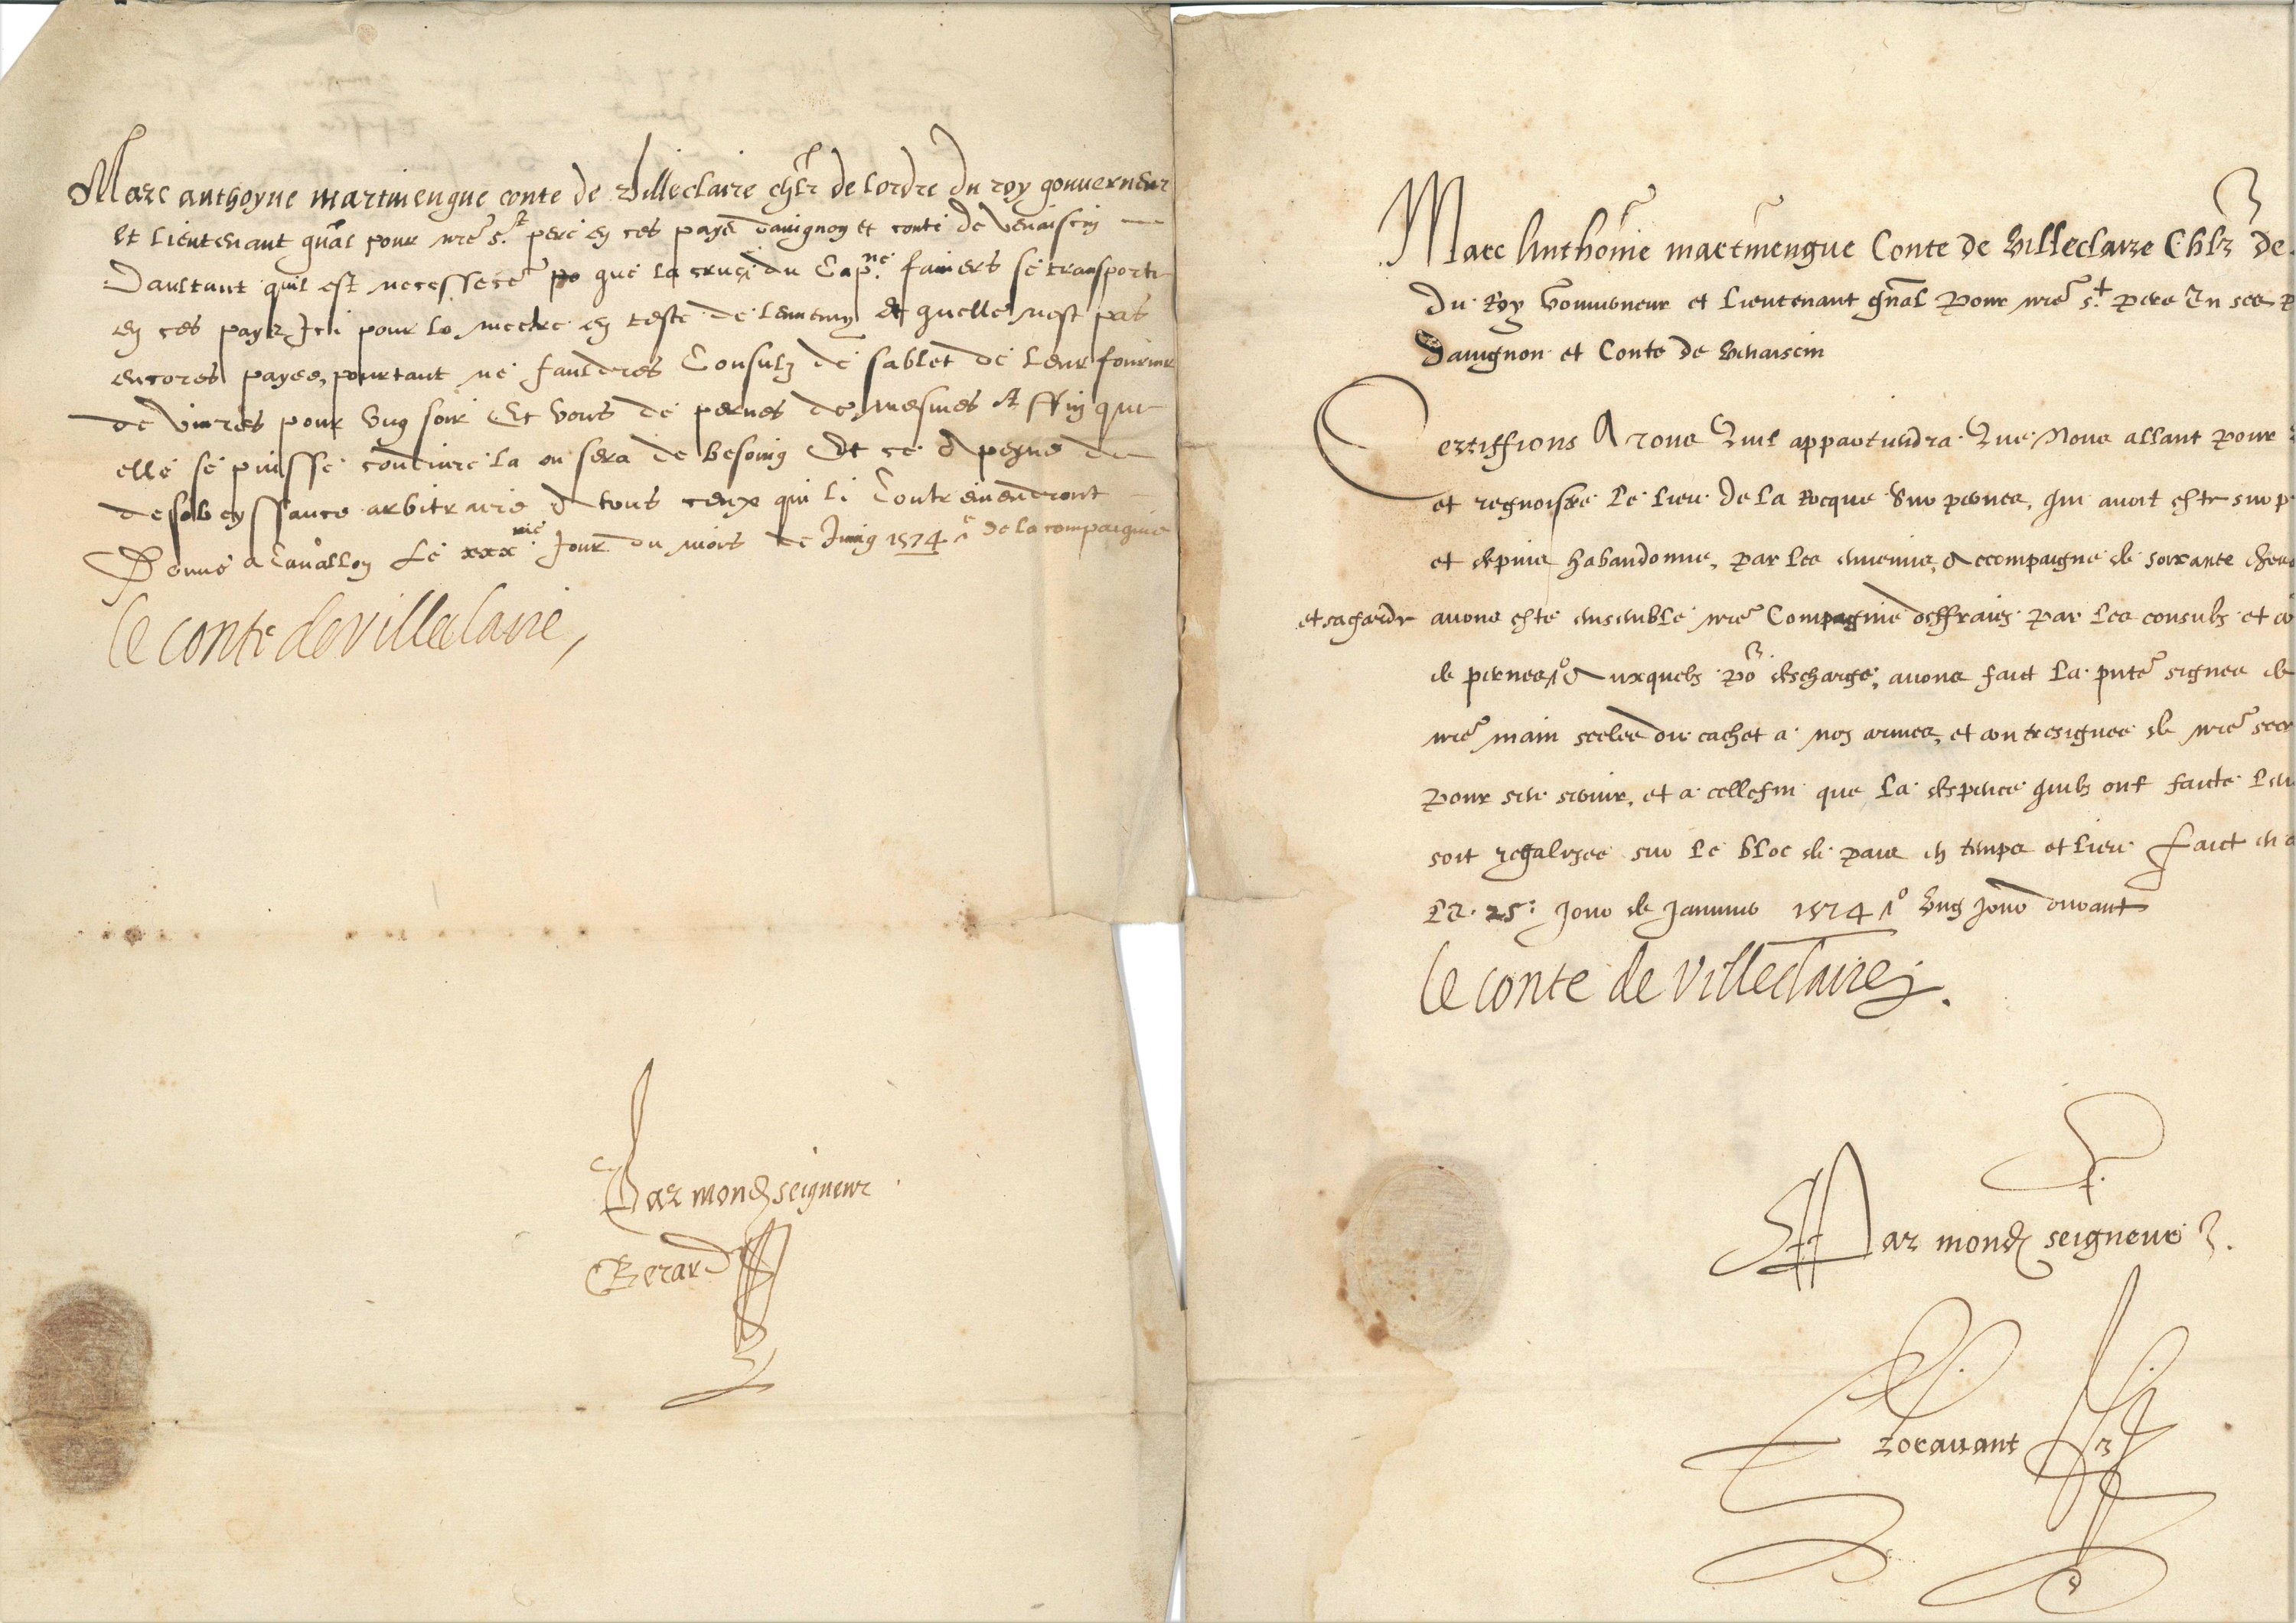 Marc anthoyne martinengue conte de Villeclaire chlr de lordre du roy gouverneur
et lieutenant gnal pour nre s.t pere en ces pays davignon et conte de Venaiscin
Daultant quil est necessere que la du Cap.ne se transporte
en ces pays Icy pour le mectre en teste de lennemy et quelle nest pas
encores payee, pourtant ne fauldres Consulz de sablet de leur fournir
de vivres pour ung soir Et vous de pernes de mesmes Affin que
elle se puisse conduire la ou sera de besoing Et ce a peyne de
desobeyssance arbitraire a tous ceux qui li Contreviendront
Donne a Cavallon Le xxx me Jour du mois de Juing 1574 de la compaignie
le conte de villeclaire,
Par mond seigneur
Berard
Marc Anthonie martinengue Conte de villeclaire Chlr de
du Roy Gouverneur et lieutenant gnal pour nre s.t pere En ses
Davignon et Conte de venaiscin
Certiffions A tous Quil appartiendra Que Nous allant pour
et regnoistre le lieu de la Rocque sur pernes, qui avoit este
et depuis habandonne, par les ennemis, Accompaigne de soixante
et sa garde avons este ensemble nre Compagnie deffraies par les consulz et
de pernes Auxquelz po descharge, avons faict la pnte signee de
nre main scelee du cachet a noz armes, et contresignee de nre
pour s'en servir, et a cellefin que la despence quilz ont faicte
soit regalisee sur le bloc du pais en temps et lieu Faict
Le 25: jour de Janvier 1574 ung jour
le conte de villeclaire.
Par mond seigneur